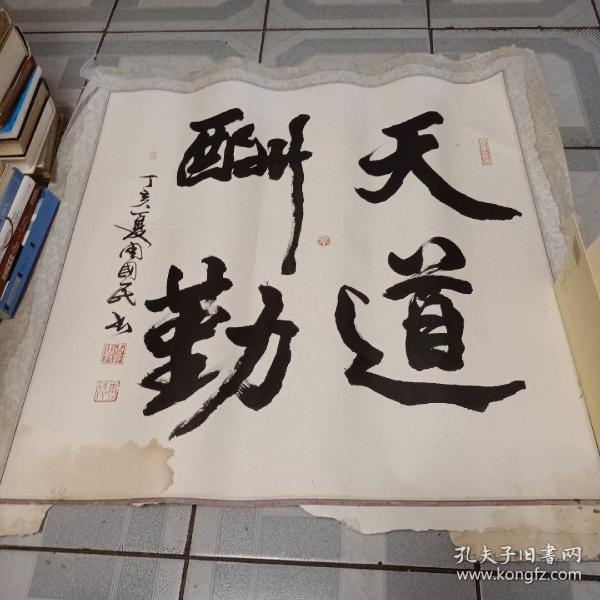 天道
酬勤
丁亥夏周國民书
孔夫子旧书网
www.kongfz.com